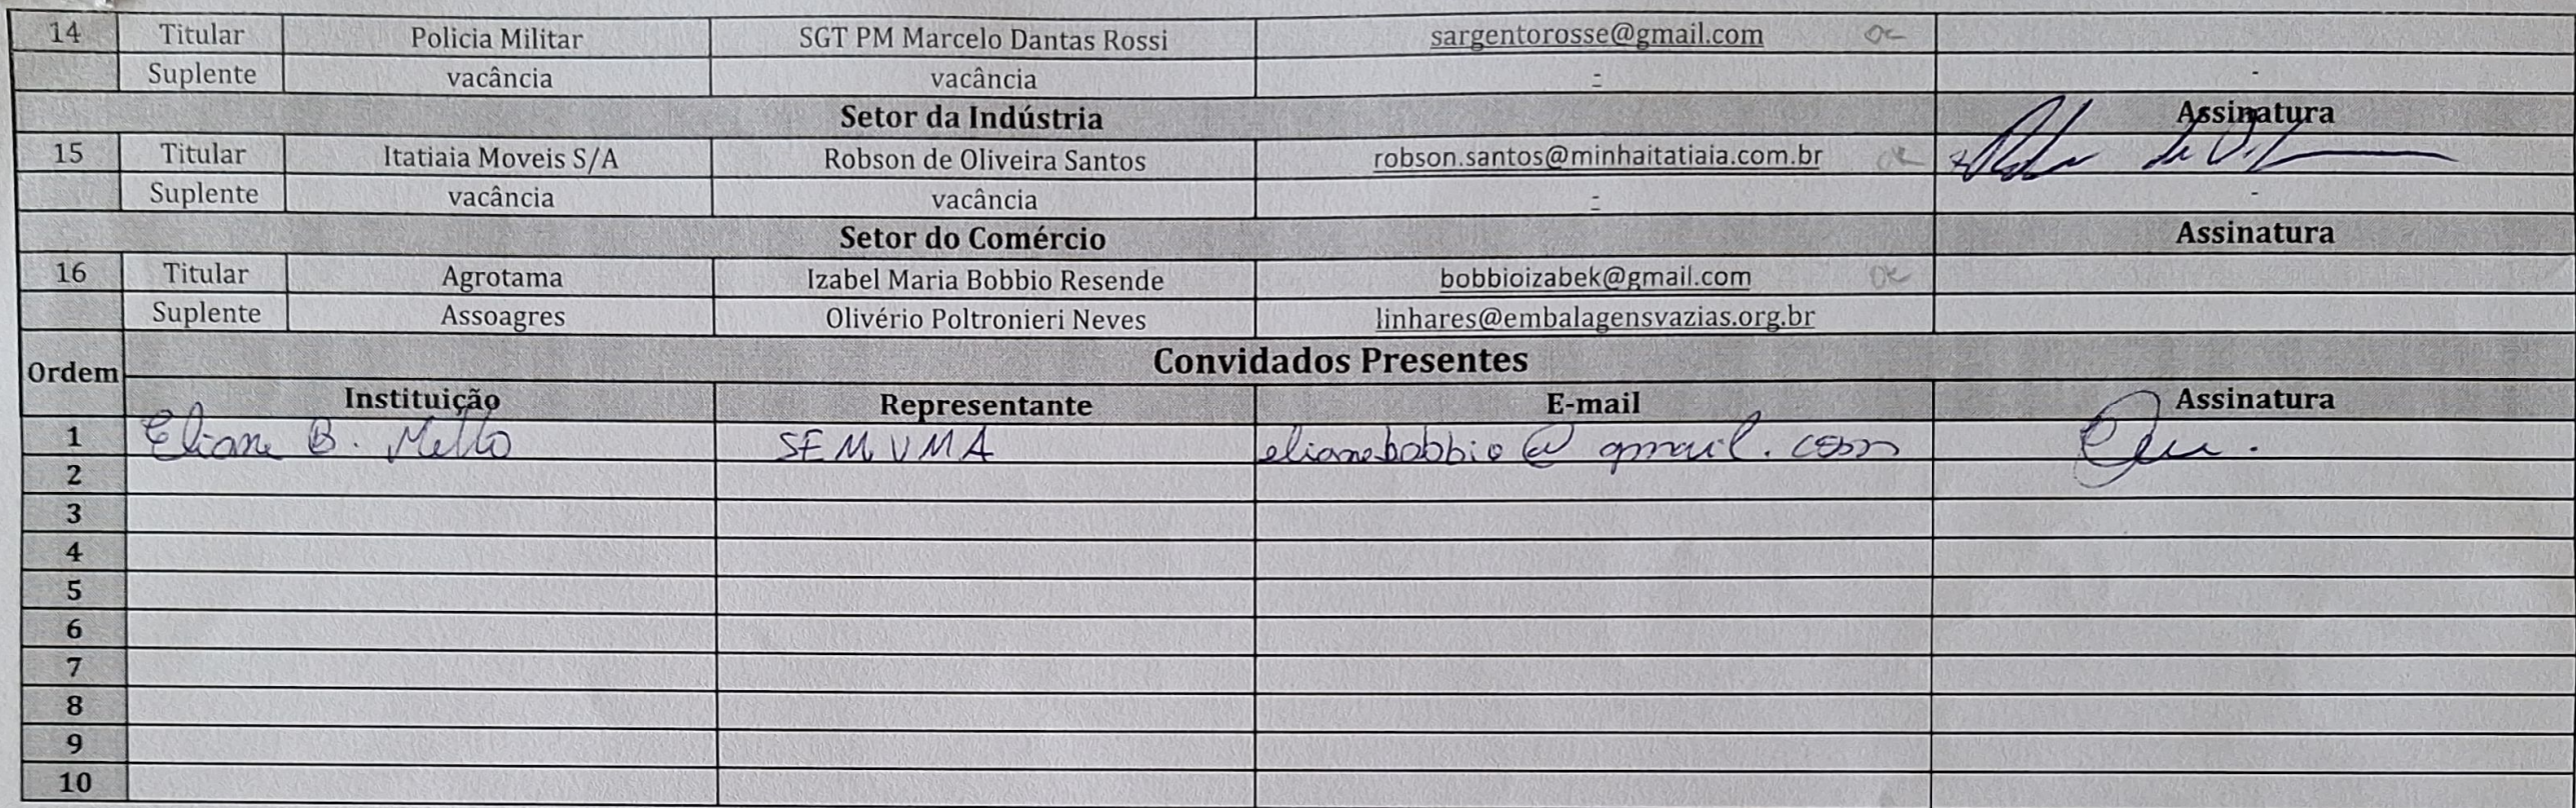 14 Titular Policia Militar SGT PM Marcelo Dantas Rossi sargentorosse@gmail.com ok
Suplente vacância vacância - -
Setor da Indústria Assinatura
15 Titular Itatiaia Moveis S/A Robson de Oliveira Santos robson.santos@minhaitatiaia.com.br ok
Suplente vacância vacância - -
Setor do Comércio Assinatura
16 Titular Agrotama Izabel Maria Bobbio Resende bobbioizabek@gmail.com ok
Suplente Assoagres Olivério Poltronieri Neves linhares@embalagensvazias.org.br
Ordem Convidados Presentes
Instituição Representante E-mail Assinatura
1 Eliane B. Mello SEMUMA elianebobbio@gmail.com
2
3
4
5
6
7
8
9
10